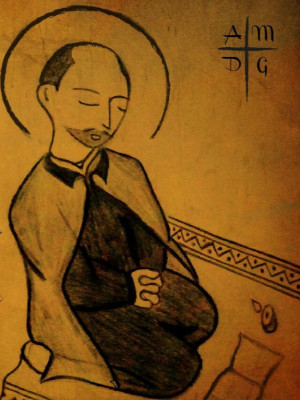 A M
D G